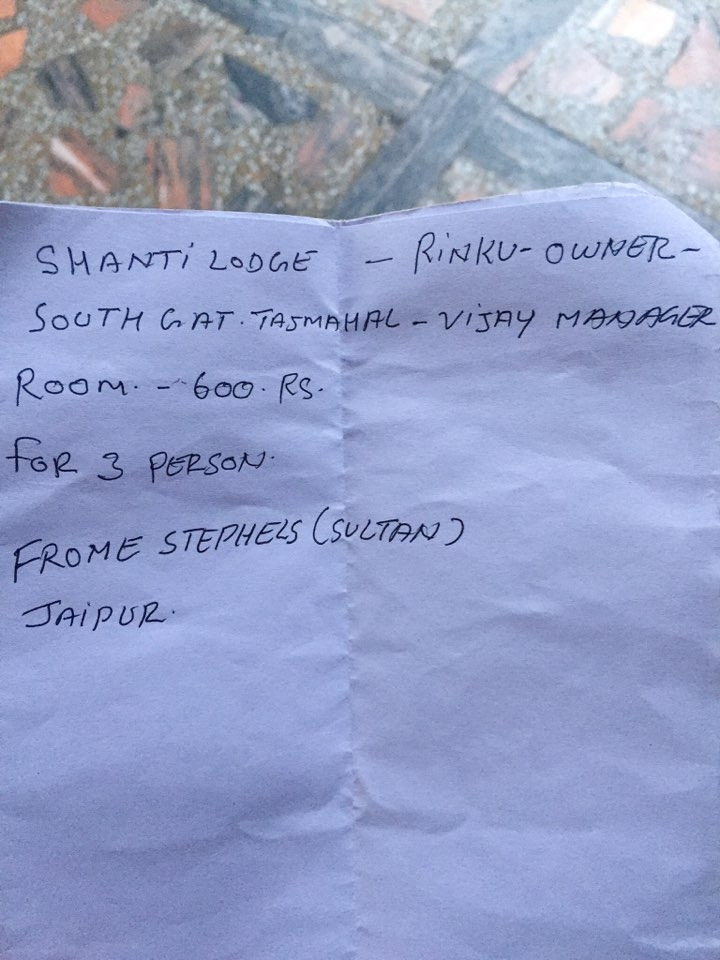 SHANTi LODGE - RiNKU - OWNER -
SOUTH GAT. TAJMAHAL - ViJAY MANAGER
ROOM. - 600. RS.
FOR 3 PERSON.
FROME STEPHELS (SULTAN)
JAiPUR.